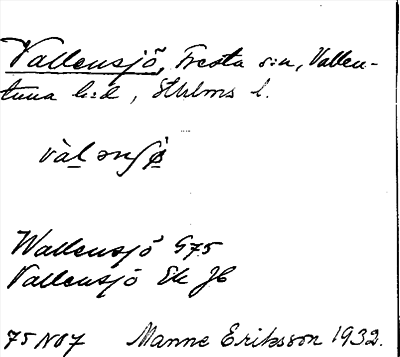 Vallensjö, Fresta s:n, Vallen-
tuna h:d, Sthlms l.
vàl ənʃø̀
Wallensjö G75
Vallensjö Ek JH
75 NO7 Manne Eriksson 1932.